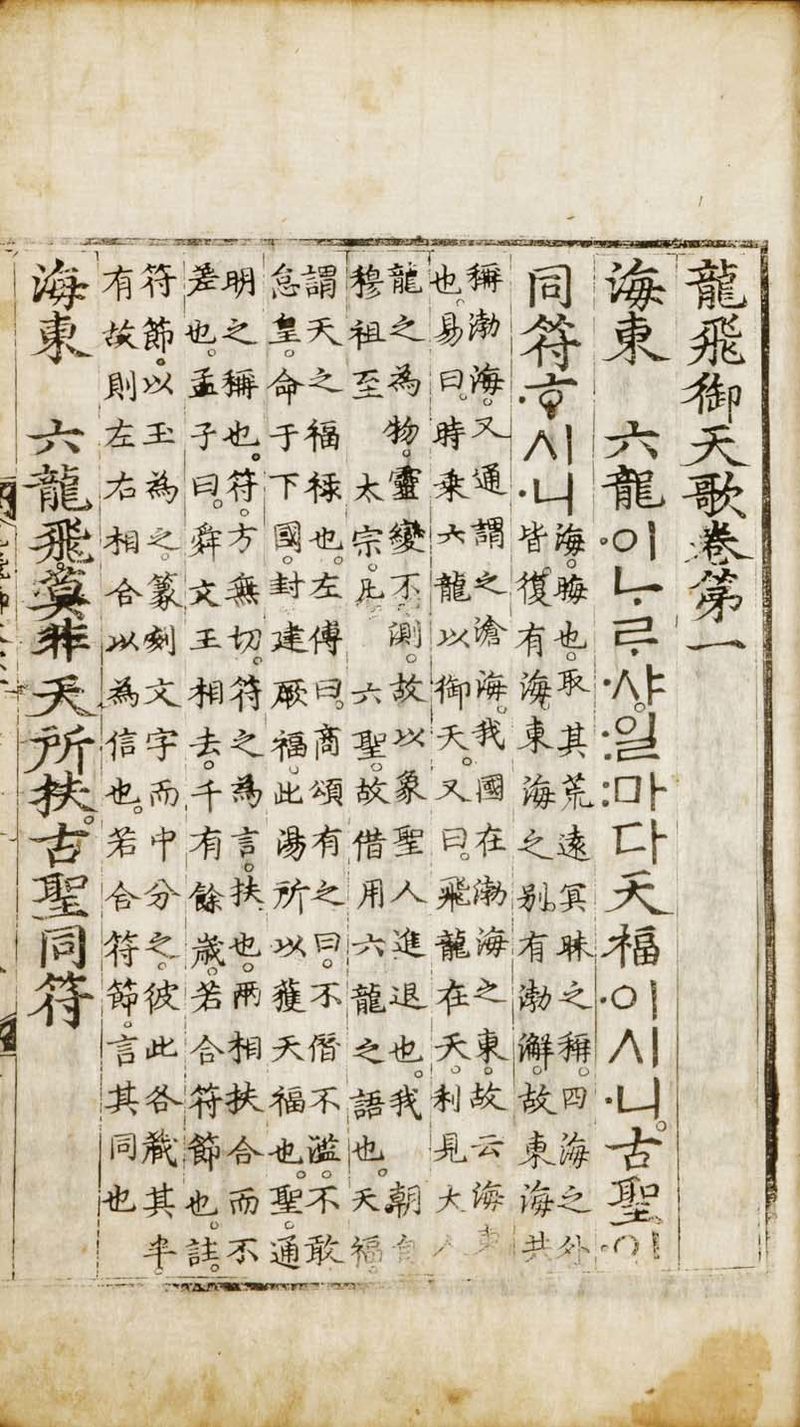 龍飛御天歌卷第一
海東 六龍·이ᄂᆞᄅᆞ·샤。:일:마다天福·이시·니。古聖·이
同符·ᄒᆞ시·니
海。晦也。取其荒遠冥昧之稱。四海之外
皆復有海。東海之别。有渤澥。故東海共
稱渤海。又通謂之滄海。我國在渤海之東。故云海東
也。易曰。時乘六龍以御天。又曰。飛龍在天。利見大人
龍之為物。靈變不測。故以象聖人進退也。我 朝自
穆祖至 太宗。凡 六聖。故借用六龍之語也。天福
謂天之福祿也。左傳曰。商頌有之曰。不僭不濫。不敢
怠皇。命于下國。封建厥福。此湯所以獲天福也。聖。通
明之稱也。符。方無切。符之為言。扶也。兩相扶合而不
差也。孟子曰。舜文王相去。千有餘歲。若合符節也。註。
符節。以玉為之。篆刻文字而中分之。彼此各藏其半
有故則左右相合以為信也。若合符節。言其同也
海東 六龍飛。莫非天所扶。古聖同符